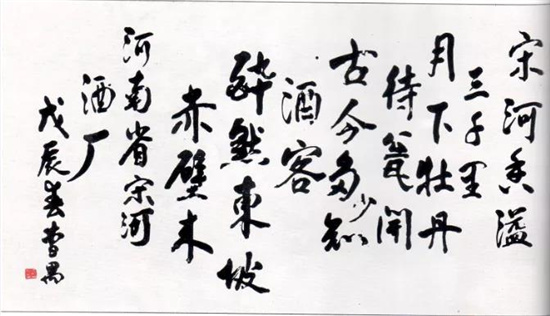 宋河香溢
三千里
月下牡丹
待瓮開
古今多少知
酒客
醉煞東坡
赤壁来
河南省宋河
酒厂
戊辰春曹禺